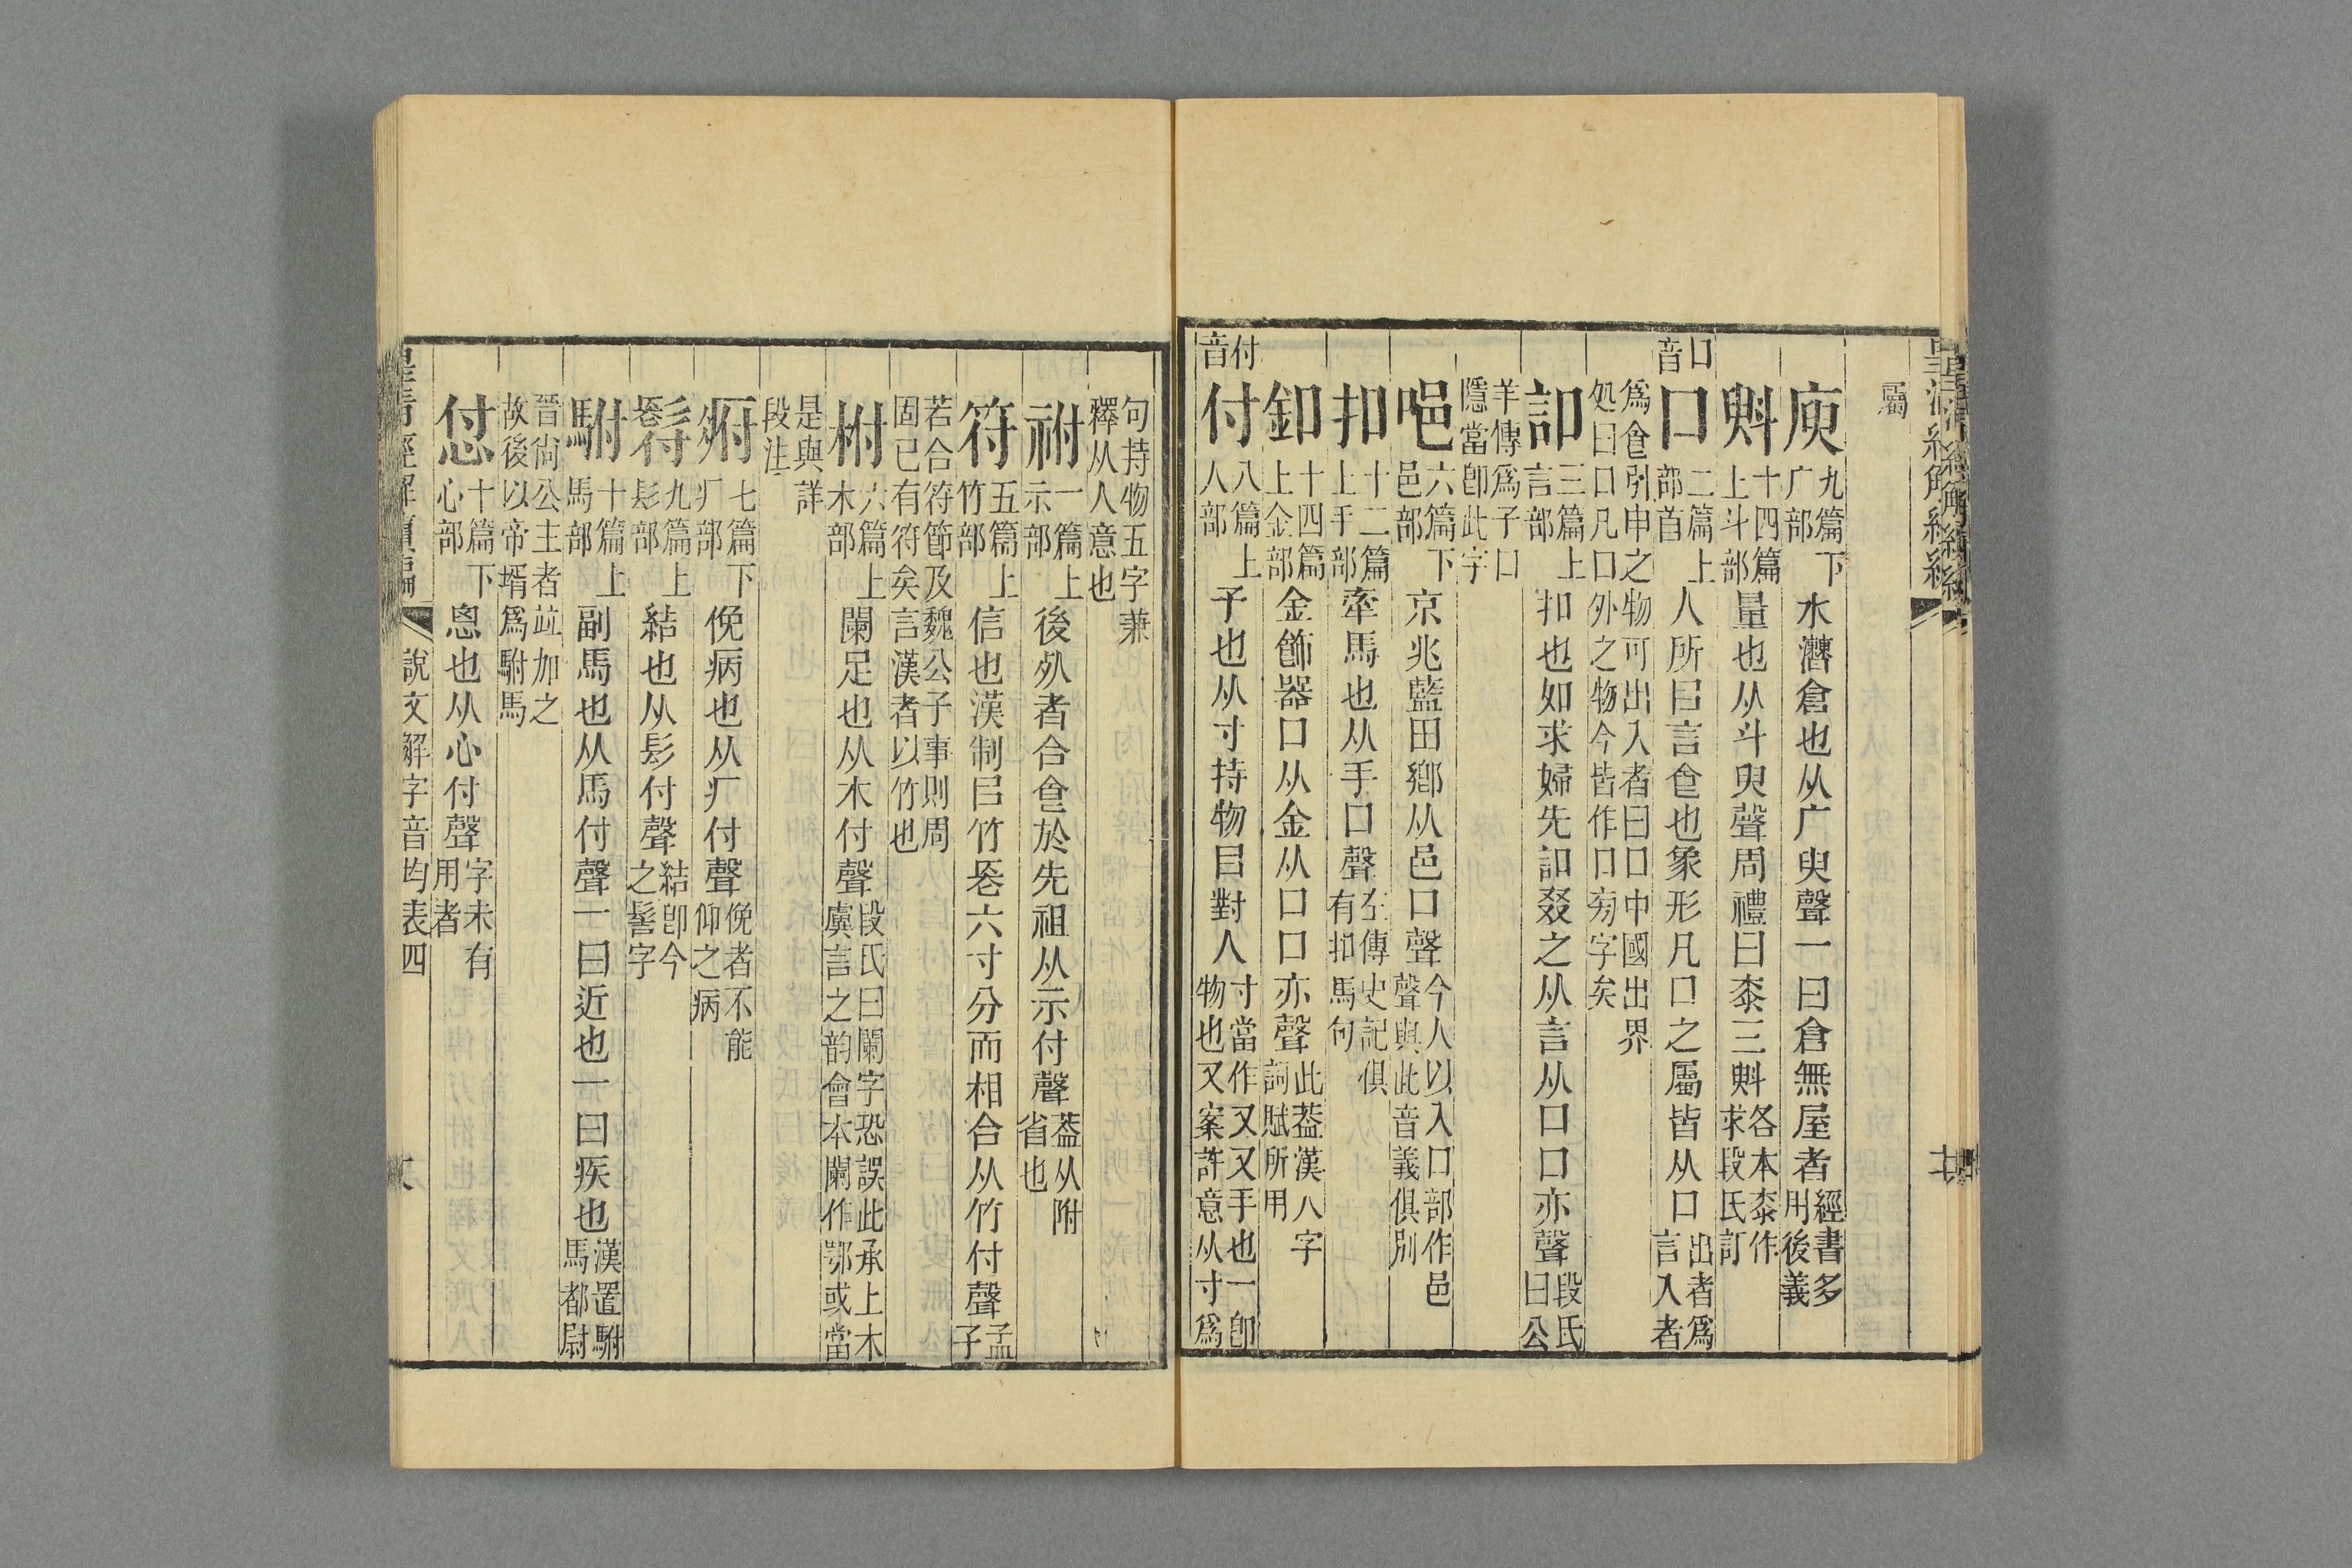 屬
庾九篇下广部水漕倉也从广臾聲一曰倉無屋者經書多用後義
㪺十四篇上斗部量也从斗臾聲周禮曰桼三㪺各本桼作求段氏訂
口音
口二篇上部首人所㠯言食也象形凡口之屬皆从口出者爲言入者
爲食引申之物可出入者曰口中國出界処曰口凡口外之物今皆作口旁字矣
訆三篇上言部扣也如求婦先訆叕之从言从口口亦聲段氏曰公
羊傳爲子口隱當卽此字
𨙫六篇下邑部京兆藍田鄉从邑口聲今人以入口部作邑聲與此音義俱別
扣十二篇上手部牽馬也从手口聲左傳史記俱有扣馬句
釦十四篇上金部金飾器口从金从口口亦聲此葢漢八字詞賦所用
付音
付八篇上人部予也从寸持物㠯對人寸當作又又手也一卽物也又案許意从寸爲
句持物五字兼釋从人意也
祔一篇上示部後𣦸者合食於先祖从示付聲葢从附省也
符五篇上竹部信也漢制㠯竹長六寸分而相合从竹付聲孟子
若合符節及魏公子事則周固已有符矣言漢者以竹也
柎六篇上木部闌足也从木付聲段氏曰闌字恐誤此承上木虡言之韵會本闌作鄂或當
是與詳段注
㾈七篇下疒部俛病也从疒付聲俛者不能仰之病
髻九篇上髟部結也从髟付聲結卽今之髻字
駙十篇上馬部副馬也从馬付聲一曰近也一曰疾也漢置駙馬都尉
晉尙公主者竝加之故後以帝壻爲駙馬
㤔十篇下心部㤙也从心付聲字未有用者
說文解字音均表四